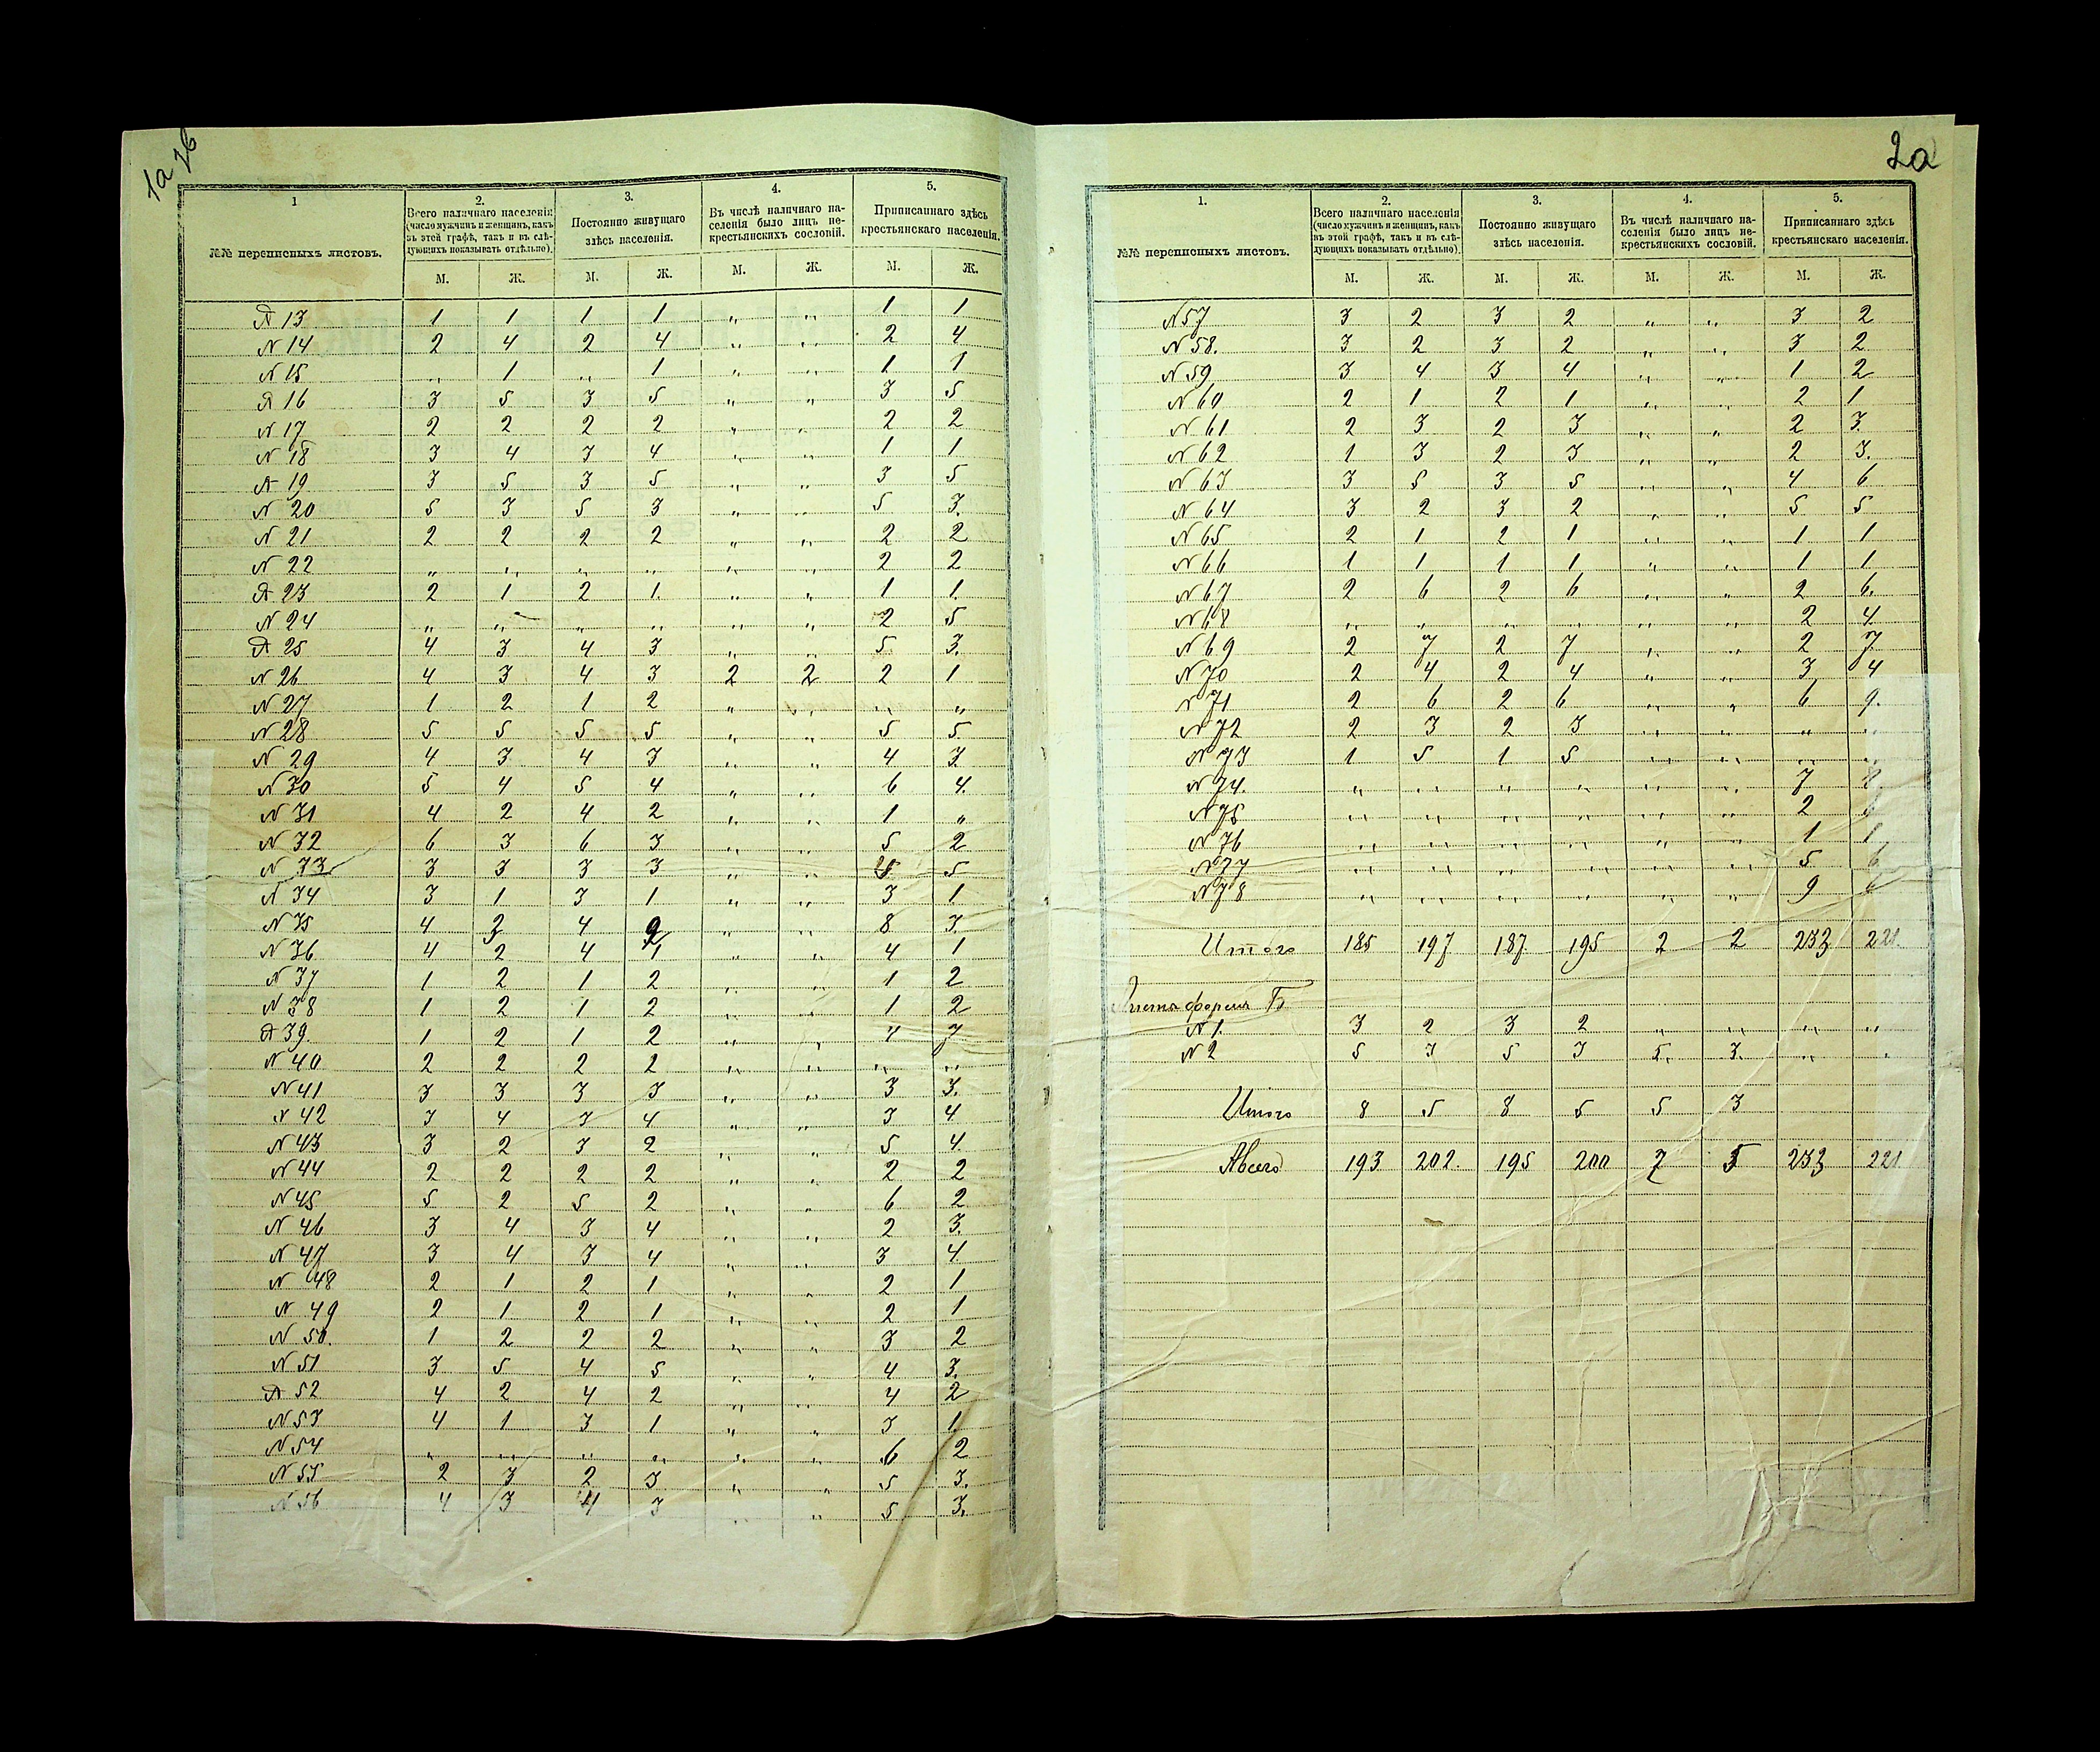 1а 1б
1
2.
3.
4.
5.
№№ переписныхъ листовъ.
Всего наличнаго населенія (число мужчинъ и женщинъ, какъ въ этой графѣ, такъ и въ слѣдующихъ показывать отдѣльно).
Постоянно живущаго здѣсь населенія.
Въ числѣ наличнаго населенія было лицъ некрестьянскихъ сословій.
Приписаннаго здѣсь крестьянскаго населенія.
М. Ж. М. Ж. М. Ж. М. Ж.
№ 13 1 1 1 1 „ „ 1 1
№ 14 2 4 2 4 „ „ 2 4
№ 15 „ 1 „ 1 „ „ 1 1
№ 16 3 5 3 5 „ „ 3 5
№ 17 2 2 2 2 „ „ 2 2
№ 18 3 4 3 4 „ „ 1 1
№ 19 3 5 3 5 „ „ 3 5
№ 20 5 3 5 3 „ „ 5 3.
№ 21 2 2 2 2 „ „ 2 2
№ 22 „ „ „ „ „ „ 2 2
№ 23 2 1 2 1. „ „ 1 1.
№ 24 „ „ „ „ „ „ 2 5
№ 25 4 3 4 3 „ „ 5 3.
№ 26 4 3 4 3 2 2 2 1
№ 27 1 2 1 2 „ „ „ „
№ 28 5 5 5 5 „ „ 5 5
№ 29 4 3 4 3 „ „ 4 3
№ 30 5 4 5 4 „ „ 6 4.
№ 31 4 2 4 2 „ „ 1 „
№ 32 6 3 6 3 „ „ 5 2
№ 33 3 3 3 3 „ „ 5
№ 34 3 1 3 1 „ „ 3 1
№ 35 4 4 „ „ 8 3.
№ 36 4 2 4 „ „ 4 1
№ 37 1 2 1 2 „ „ 1 2
№ 38 1 2 1 2 „ „ 1 2
№ 39. 1 2 1 2 „ „ 4 7
№ 40 2 2 2 2 „ „ „ „
№ 41 3 3 3 3 „ „ 3 3.
№ 42 3 4 3 4 „ „ 3 4
№ 43 3 2 3 2 „ „ 5 4.
№ 44 2 2 2 2 „ „ 2 2
№ 45 5 2 5 2 „ „ 6 2
№ 46 3 4 3 4 „ „ 2 3.
№ 47 3 4 3 4 „ „ 3 4.
№ 48 2 1 2 1 „ „ 2 1
№ 49 2 1 2 1 „ „ 2 1
№ 50. 1 2 2 2 „ „ 3 2
№ 51 3 5 4 5 „ „ 4 3.
№ 52 4 2 4 2 „ „ 4 2
№ 53 4 1 3 1 „ „ 3 1.
№ 54 „ „ „ „ „ „ 6 2
№ 55 2 3 2 3 „ „ 5 3.
№ 56 4 3 4 3 „ „ 5 3.
2а
1.
2.
3.
4.
5.
№№ переписныхъ листовъ.
Всего наличнаго населенія (число мужчинъ и женщинъ, какъ въ этой графѣ, такъ и въ слѣдующихъ показывать отдѣльно).
Постоянно живущаго здѣсь населенія.
Въ числѣ наличнаго населенія было лицъ некрестьянскихъ сословій.
Приписаннаго здѣсь крестьянскаго населенія.
М. Ж. М. Ж. М. Ж. М. Ж.
№ 57 3 2 3 2 „ „ 3 2
№ 58. 3 2 3 2 „ „ 3 2
№ 59 3 4 3 4 „ „ 1 2
№ 60 2 1 2 1 „ „ 2 1
№ 61 2 3 2 3 „ „ 2 3.
№ 62 1 3 2 3 „ „ 2 3.
№ 63 3 5 3 5 „ „ 4 6
№ 64 3 2 3 2 „ „ 5 5
№ 65 2 1 2 1 „ „ 1 1
№ 66 1 1 1 1 „ „ 1 1.
№ 67 2 6 2 6 „ „ 2 6.
№ 68 „ „ „ „ „ „ 2 4.
№ 69 2 7 2 7 „ „ 2 7
№ 70 2 4 2 4 „ „ 3 4
№ 71 2 6 2 6 „ „ 6 9.
№ 72 2 3 2 3 „ „ „ „
№ 73 1 5 1 5 „ „ „ „
№ 74. „ „ „ „ „ „ 7
№ 75 „ „ „ „ „ „ 2
№ 76 „ „ „ „ „ „ 1 1
№ 77 „ „ „ „ „ „ 5 6
№ 78 „ „ „ „ „ „ 9 6
Итого 185 197 187. 195 2 2 233 221.
Листа форма Б
№ 1. 3 2 3 2 „ „ „ „
№ 2 5 3 5 3 5. 3. „ „
Итого 8 5 8 5 5 3
Авсего 193 202. 195 200 7 5 233 221